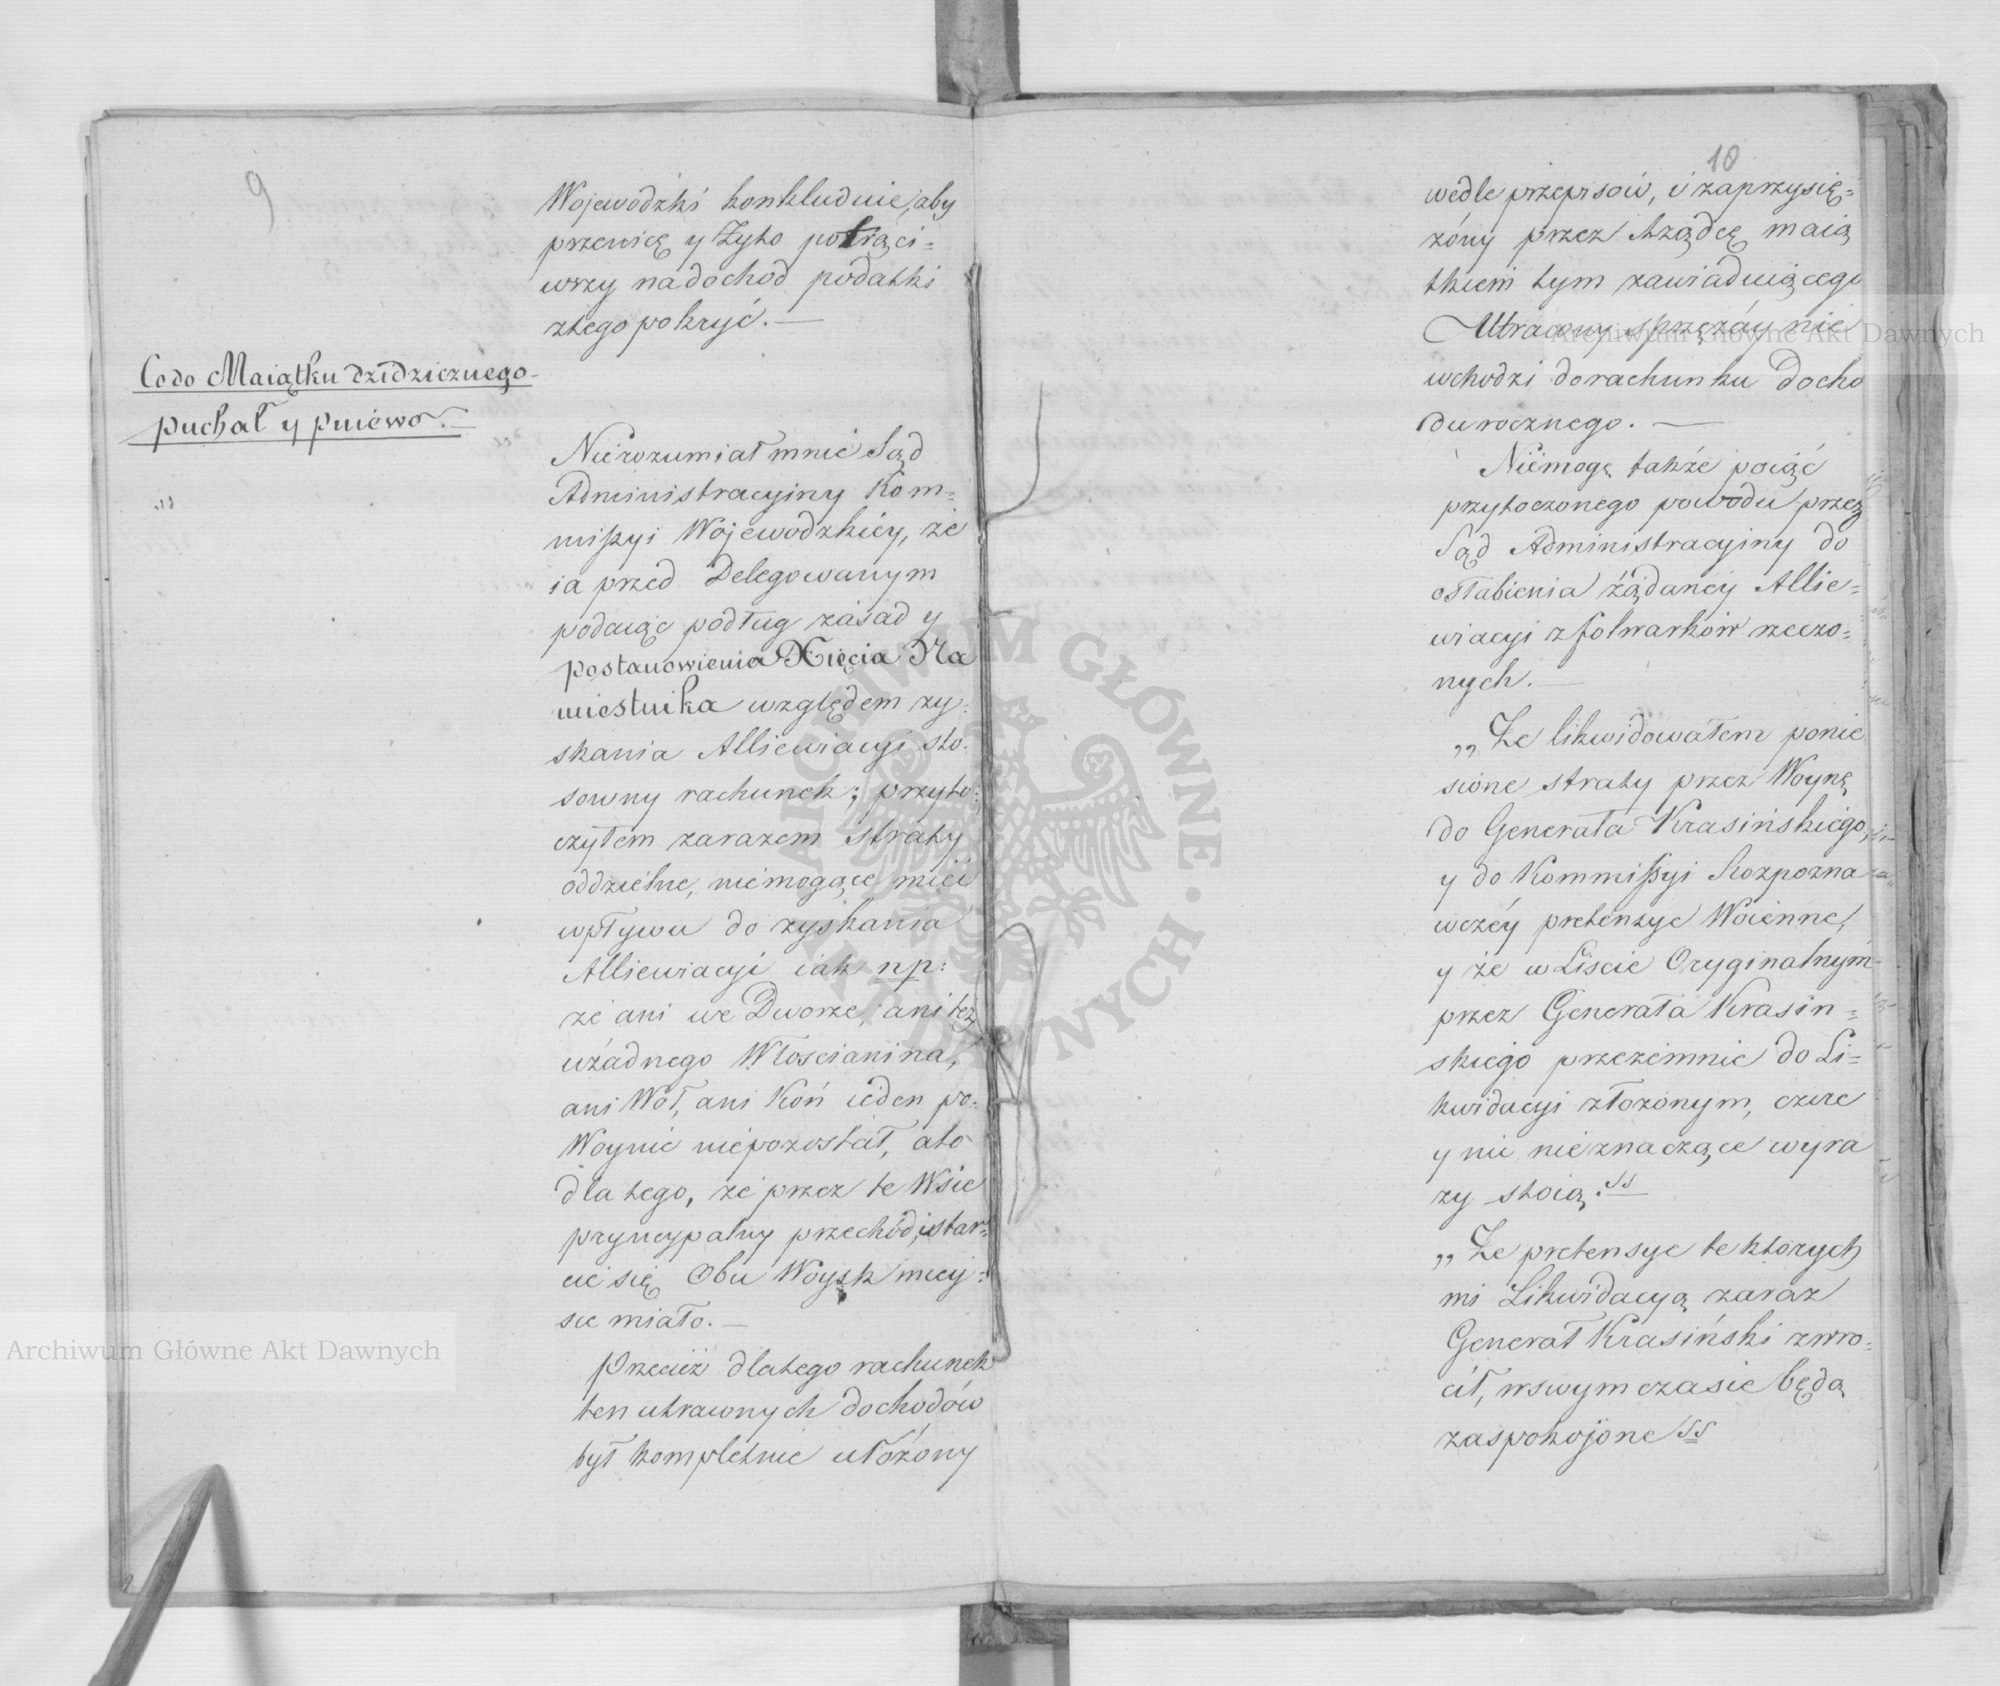 9
Wojewodzki konkluduie, aby
przenicę y Żyto potrąci=
wszy na dochod podatki
ztego pokryć. —
Codo Maiątku dziedzicznego
puchał y pniewo. —
Nierozumiał mnie Sąd
Administracyiny Kom=
mißyi Wojewodzkiéy, że
ia przed Delegowanym
podaiąc podług zasad y
postanowienia Xięcia Na
miestnika względem zy=
skania Alliewiacyi sto=
sowny rachunek; przyto=
czyłem zarazem straty
oddzielne, niemogące mieć
wpływu do zyskania
Alliewiacyi iak np:
że ani we Dworze, ani też
użadnego Włoscianina,
ani Wół, ani Koń ieden po=
Woynie niepozostał, ato
dla tego, że przez te Wsie
pryncypalny przechód, i star=
cie się Obu Woysk miey=
sce miało. —
Przecież dlatego rachunek
ten utraconych dochodów
był kompletnie ułożony
10
wedle przepisów, i zaprzysię=
żóny przez Rządcę maią
tkiem tym zawiaduiącego
Utracony sprzężay nie
wchodzi dorachunku Docho
du rocznego. —
Niemogę także poiąć
przytoczonego powodu przez
Sąd Administracyiny do
osłabienia żądanéy Allie=
wiacyi z folwarków rzeczo=
nych. —
„ Że likwidowałem ponie
sione straty przez Woynę
do Generała Krasińskiego,
y do Kommißyi Rozpozna
wczéy pretensye Woienne,
y że w Liscie Oryginalnym
przez Generała Krasiń=
skiego przezemnie do Li=
kwidacyi złożonym, czcze
y nic nieznaczące wyra
zy stoią."
„ Że pretensye te których
mi Likwidacyą zaraz
Generał Krasiński zwró=
cił, w swym czasie będą
zaspokojone "
Archiwum Główne Akt Dawnych
Archiwum Główne Akt Dawnych
ARCHIWUM GŁÓWNE AKT DAWNYCH